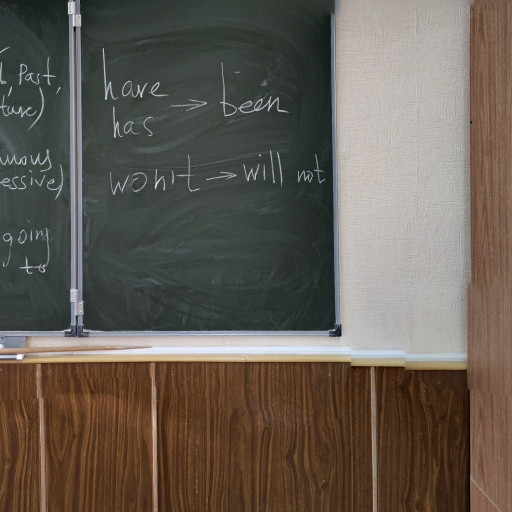 Past,
ture)
nuous
essive)
going
to
have
has → been
won't → will not